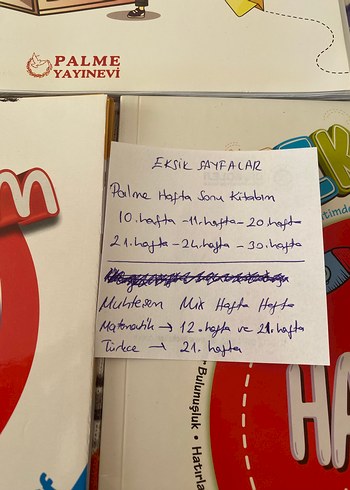 PALME
YAYINEVİ
EKSİK SAYFALAR
Palme Hafta Sonu Kitabım
10. hafta - 11. hafta - 20. hafta
21. hafta - 24. hafta - 30. hafta
Muhteşem Mix Hafta Hafta
Matematik → 12. hafta ve 21. hafta
Türkçe → 21. hafta
Bulunuşluk • Hatırla
HA